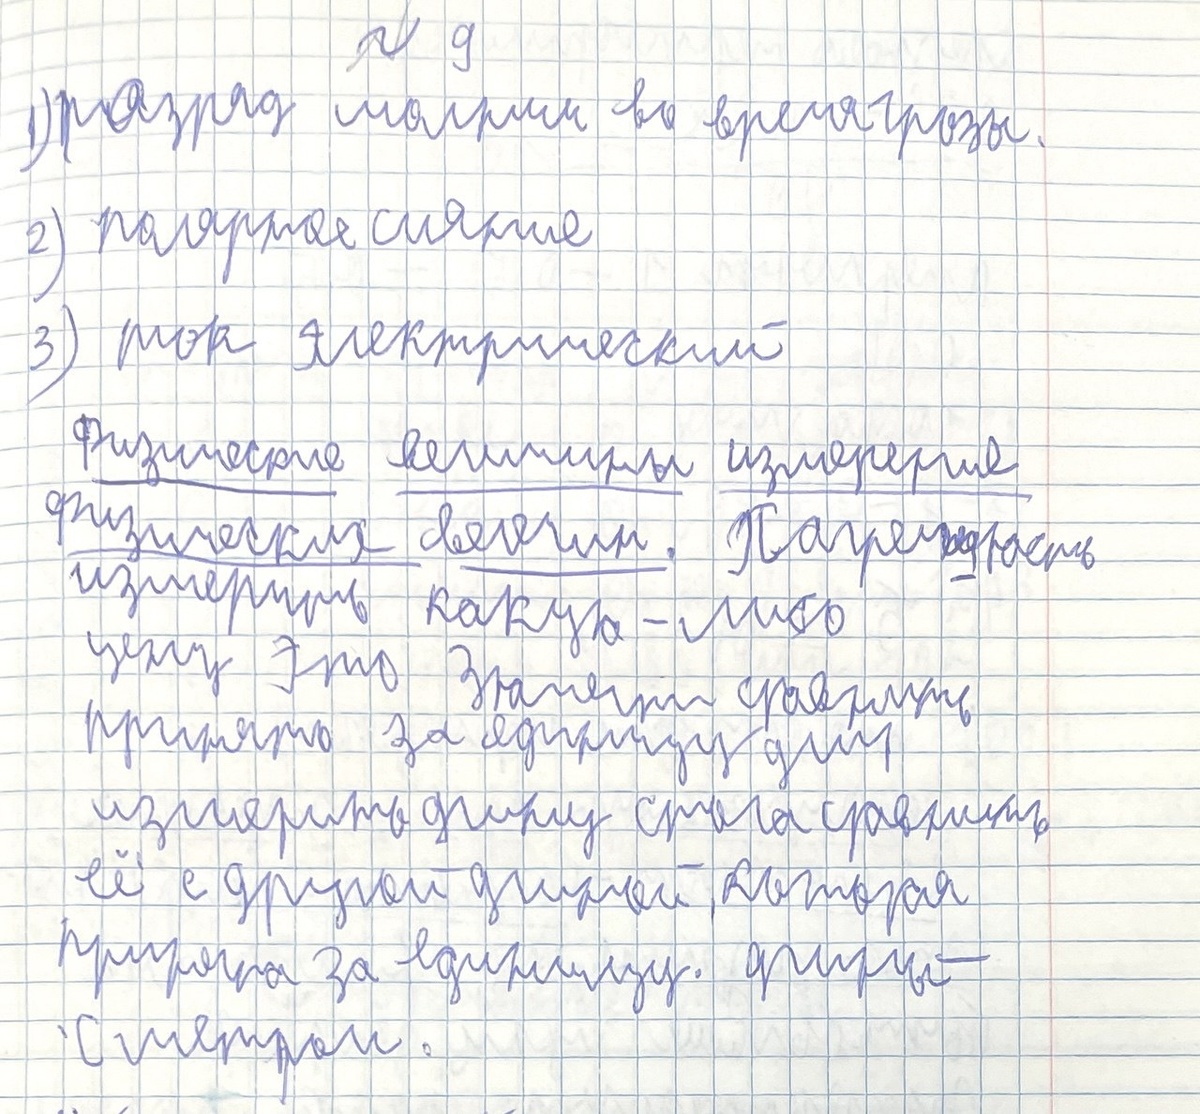 № 9
1) разряд молнии во время грозы.
2) полярное сияние
3) ток электрический
Физические величины измерение
физических величин. Пагрешность
измерить какую-либо
цену это значит сравнить
принято за единицу дли
измерить длину стола сравнить
её с другой длиной, которая
принята за единицу. длины-
с метром.